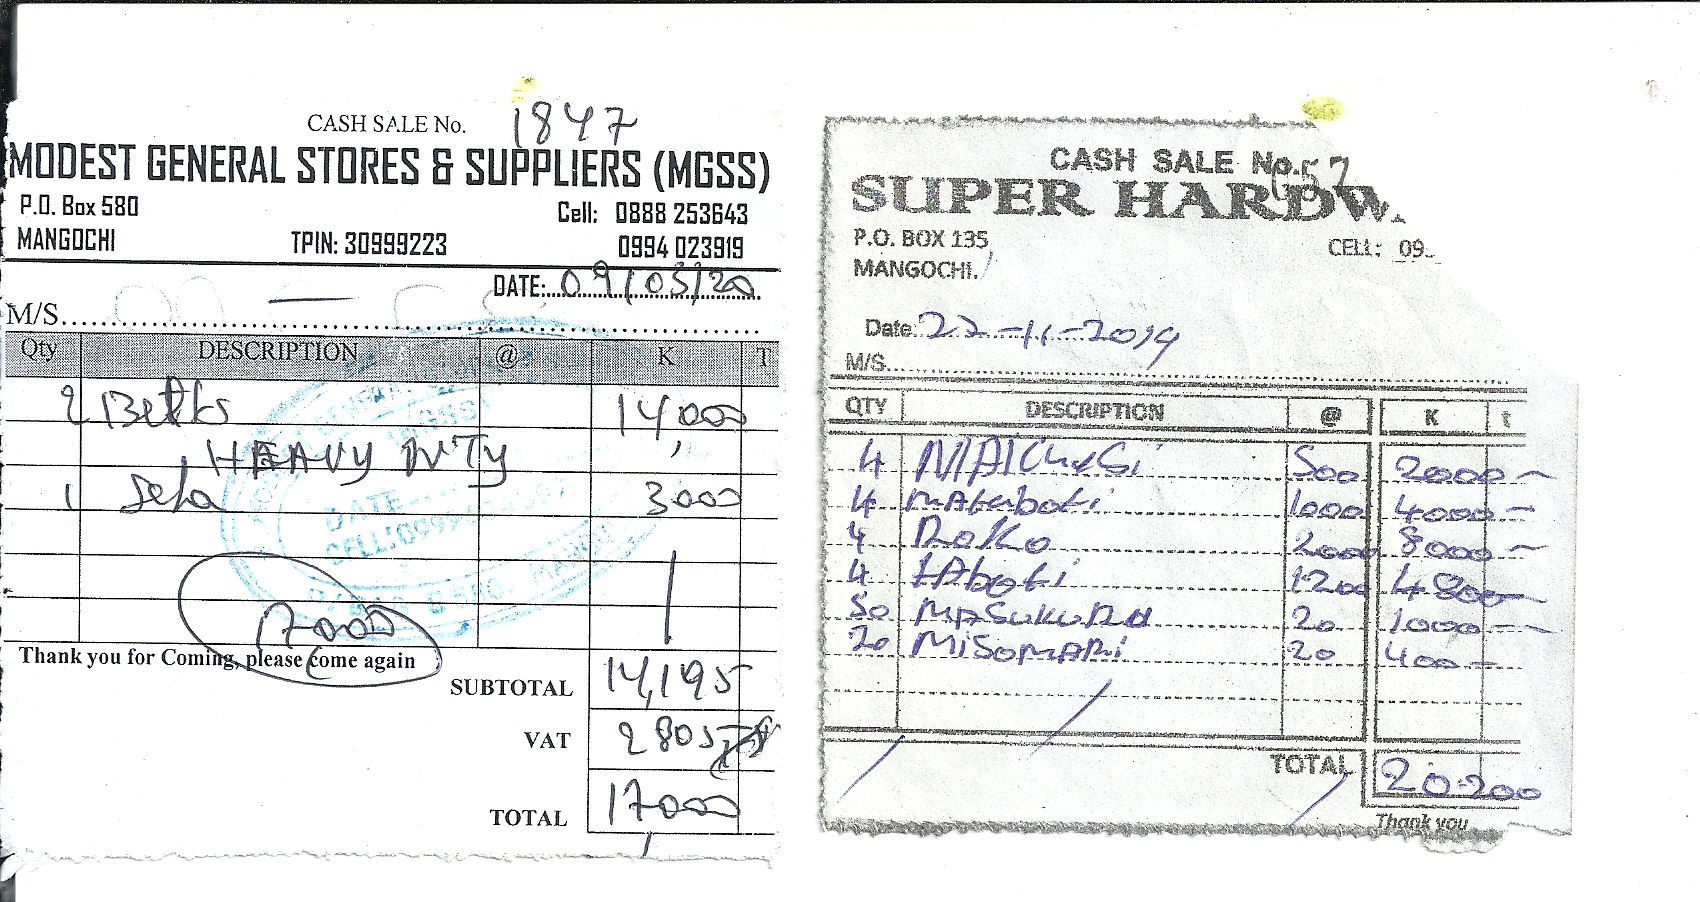 CASH SALE No. 1847
MODEST GENERAL STORES & SUPPLIERS (MGSS)
P.O. Box 580
Cell: 0888 253643
MANGOCHI
TPIN: 30999223
0994 023919
DATE: 09/03/20
M/S
Qty DESCRIPTION @ K T
2 14,000
HEAVY
1 3000
17000
Thank you for Coming, please come again
SUBTOTAL 14,195
VAT 2805
TOTAL 17000
CASH SALE No. 57
SUPER HARDW
P.O. BOX 135
CELL: 09
MANGOCHI.
Date: 22-11-2019
M/S
QTY DESCRIPTION @ K t
4 MAICHESi 500 2000
4 MAtaboti 1000 4000
4 ROKO 2000 8000
4 tAboti 1200 4800
50 MASUKURU 20 1000
20 MiSOMARi 20 400
TOTAL 20.200
Thank you